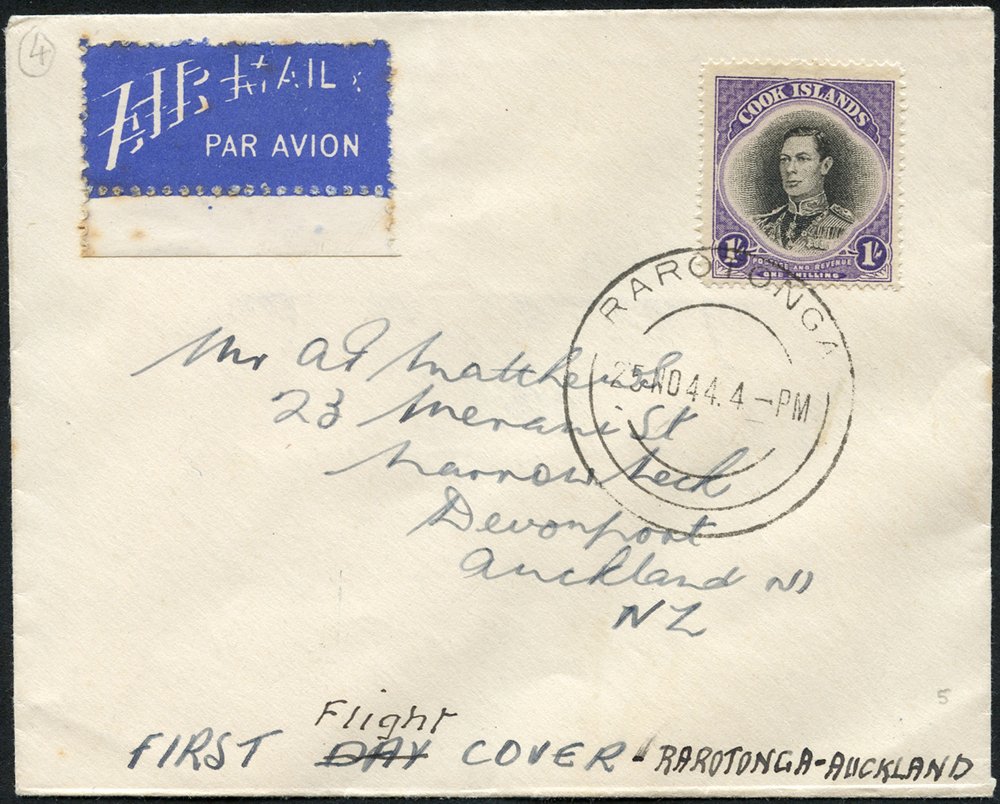 4
AIR MAIL
PAR AVION
COOK ISLANDS
1/- 1/-
POSTAGE AND REVENUE
ONE SHILLING
RAROTONGA
25 NO 44. 4 - PM
Mr A
23 Merani St
Narrow Neck
Devonport
Auckland N1
NZ
5
Flight
FIRST DAY COVER - RAROTONGA-AUCKLAND